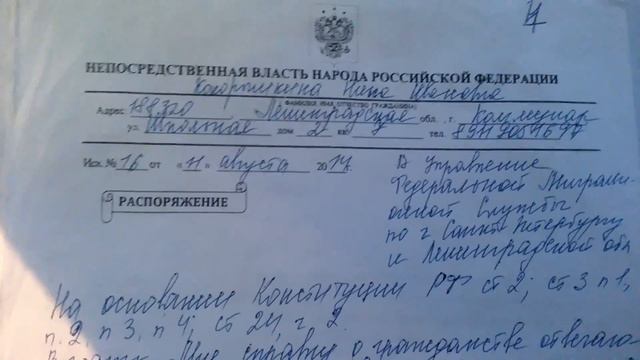 НЕПОСРЕДСТВЕННАЯ ВЛАСТЬ НАРОДА РОССИЙСКОЙ ФЕДЕРАЦИИ
Нина Ивановна
ФАМИЛИЯ, ИМЯ, ОТЧЕСТВО (ГРАЖДАНИНА)
Адрес 188320 Ленинградская обл., г. Коммунар
ул. Школьная дом 2 кв. тел.
Исх. № 16 от «11» августа 2017г.
РАСПОРЯЖЕНИЕ
В Управление
Федеральной Миграци-
онной Службы
по г Санкт-Петербургу
и Ленинградской обл
На основании Конституции РФ ст 2; ст 3 п 1,
п. 2, п 3, п 4; ст 24, г. 2.
Мне справку о гражданстве